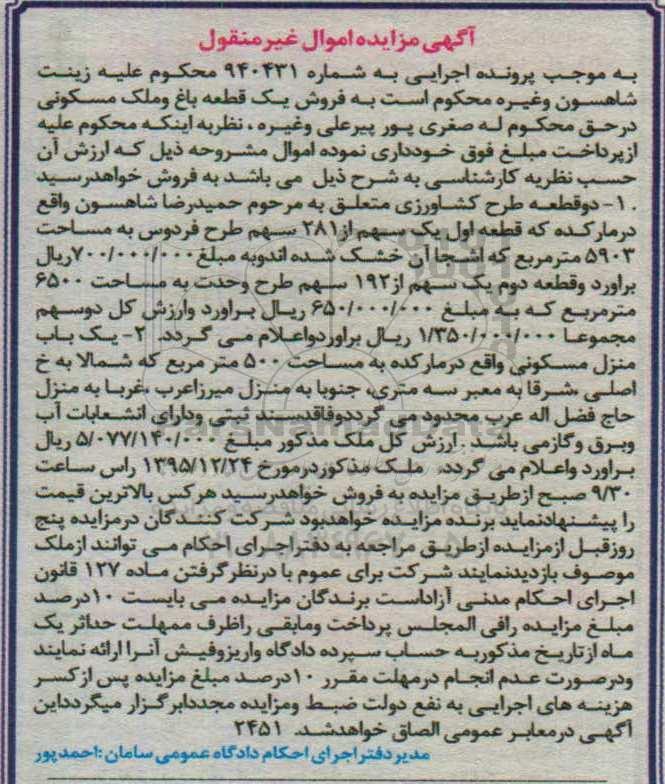 آگهی مزایده اموال غیرمنقول
به موجب پرونده اجرایی به شماره ۹۴۰۴۳۱ محکوم علیه زینت
شاهسون وغیره محکوم است به فروش یک قطعه باغ وملک مسکونی
درحق محکوم له صغری پور پیرعلی وغیره ، نظربه اینکه محکوم علیه
ازپرداخت مبلغ فوق خودداری نموده اموال مشروحه ذیل که ارزش آن
حسب نظریه کارشناسی به شرح ذیل می باشد به فروش خواهدرسید
. ۱- دوقطعه طرح کشاورزی متعلق به مرحوم حمیدرضا شاهسون واقع
درمارکده که قطعه اول یک سهم از۲۸۱ سهم طرح فردوس به مساحت
۵۹۰۳ مترمربع که اشجا آن خشک شده اندوبه مبلغ ۷۰۰/۰۰۰/۰۰۰ریال
براورد وقطعه دوم یک سهم از۱۹۲ سهم طرح وحدت به مساحت ۶۵۰۰
مترمربع که به مبلغ ۶۵۰/۰۰۰/۰۰۰ ریال براورد وارزش کل دوسهم
مجموعا ۱/۳۵۰/۰۰۰/۰۰۰ ریال براوردواعلام می گردد. ۲- یک باب
منزل مسکونی واقع درمارکده به مساحت ۵۰۰ متر مربع که شمالا به خ
اصلی ،شرقا به معبر سه متری، جنوبا به منزل میرزاعرب ،غربا به منزل
حاج فضل اله عرب محدود می گرددوفاقدسند ثبتی ودارای انشعابات آب
وبرق وگازمی باشد . ارزش کل ملک مذکور مبلغ ۵/۰۷۷/۱۴۰/۰۰۰ ریال
براورد واعلام می گردد. ملک مذکوردرمورخ ۱۳۹۵/۱۲/۲۴ راس ساعت
۹/۳۰ صبح ازطریق مزایده به فروش خواهدرسید هرکس بالاترین قیمت
را پیشنهادنماید برنده مزایده خواهدبود شرکت کنندگان درمزایده پنج
روزقبل ازمزایده ازطریق مراجعه به دفتراجرای احکام می توانند ازملک
موصوف بازدیدنمایند شرکت برای عموم با درنظرگرفتن ماده ۱۲۷ قانون
اجرای احکام مدنی آزاداست برندگان مزایده می بایست ۱۰درصد
مبلغ مزایده رافی المجلس پرداخت ومابقی راظرف ممهلت حداثر یک
ماه ازتاریخ مذکوربه حساب سپرده دادگاه واریزوفیش آنرا ارائه نمایند
ودرصورت عدم انجام درمهلت مقرر ۱۰درصد مبلغ مزایده پس ازکسر
هزینه های اجرایی به نفع دولت ضبط ومزایده مجددابرگزار میگردداین
آگهی درمعابر عمومی الصاق خواهدشد. ۲۴۵۱
مدیر دفتر اجرای احکام دادگاه عمومی سامان :احمدپور
ParsNamadData